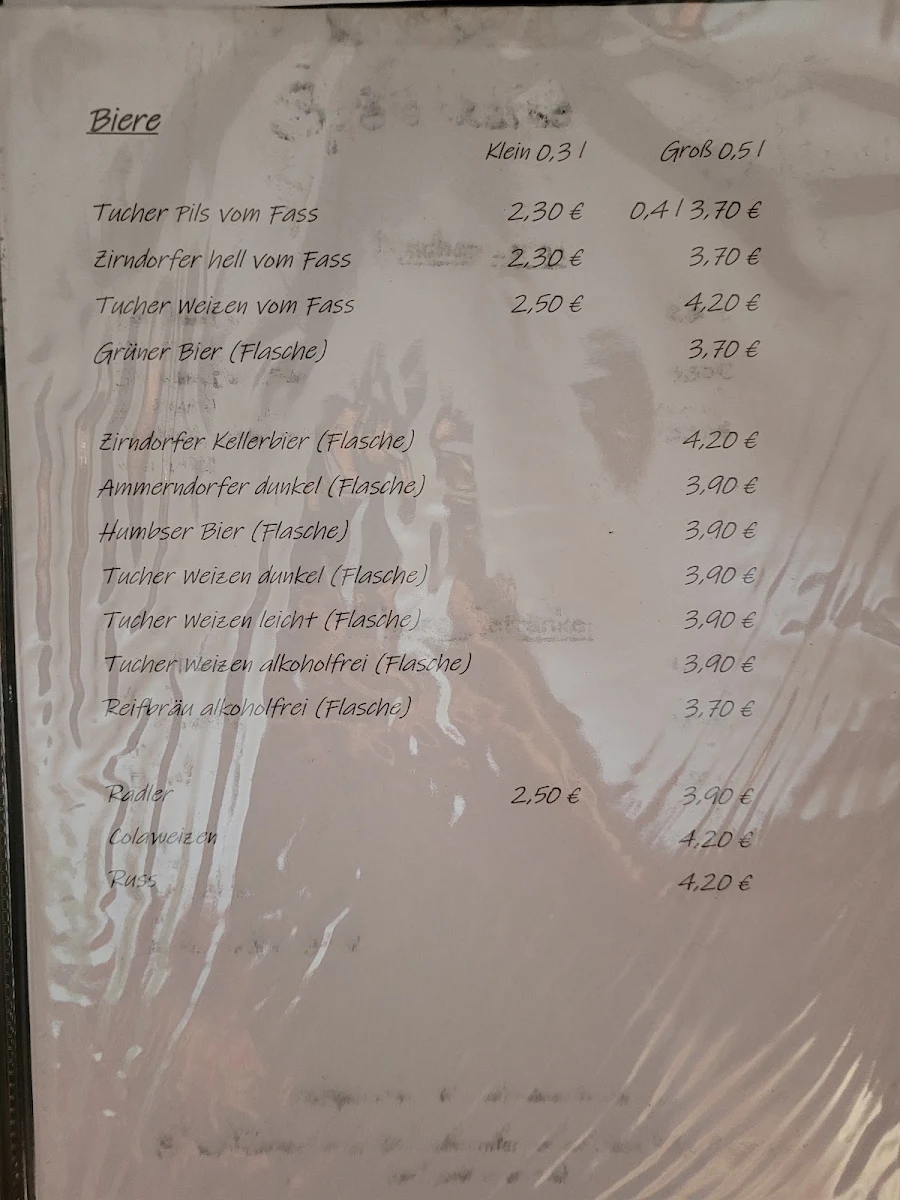 Biere
Klein 0,3 l Groß 0,5 l
Tucher Pils vom Fass 2,30 € 0,4 l 3,70 €
Zirndorfer hell vom Fass 2,30 € 3,70 €
Tucher Weizen vom Fass 2,50 € 4,20 €
Grüner Bier (Flasche) 3,70 €
Zirndorfer Kellerbier (Flasche) 4,20 €
Ammerndorfer dunkel (Flasche) 3,90 €
Humbser Bier (Flasche) 3,90 €
Tucher Weizen dunkel (Flasche) 3,90 €
Tucher Weizen leicht (Flasche) 3,90 €
Tucher Weizen alkoholfrei (Flasche) 3,90 €
Reifbräu alkoholfrei (Flasche) 3,70 €
Radler 2,50 € 3,90 €
Colaweizen 4,20 €
Russ 4,20 €